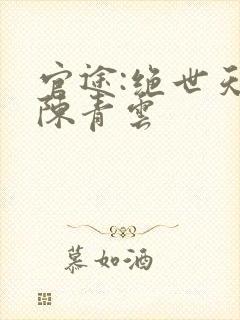 官途:绝世天
陈青雲
慕如酒